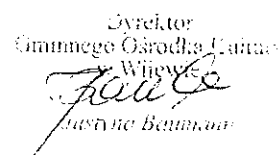 Dyrektor
Gminnego Ośrodka Kultury
w Wijewie
Justyna